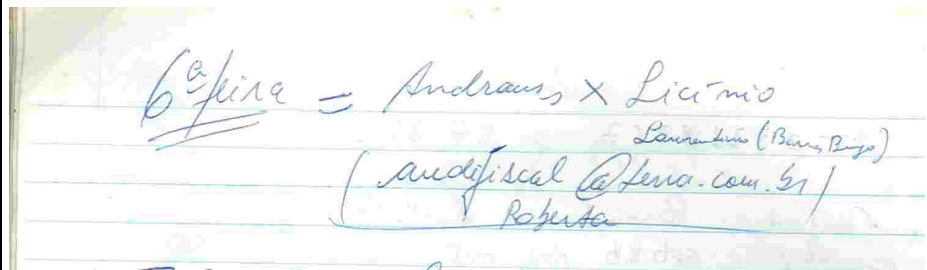 6ª feira = Andraus x Licínio
Laurentino (Barra Bingo)
(audifiscal@terra.com.br)
Roberta